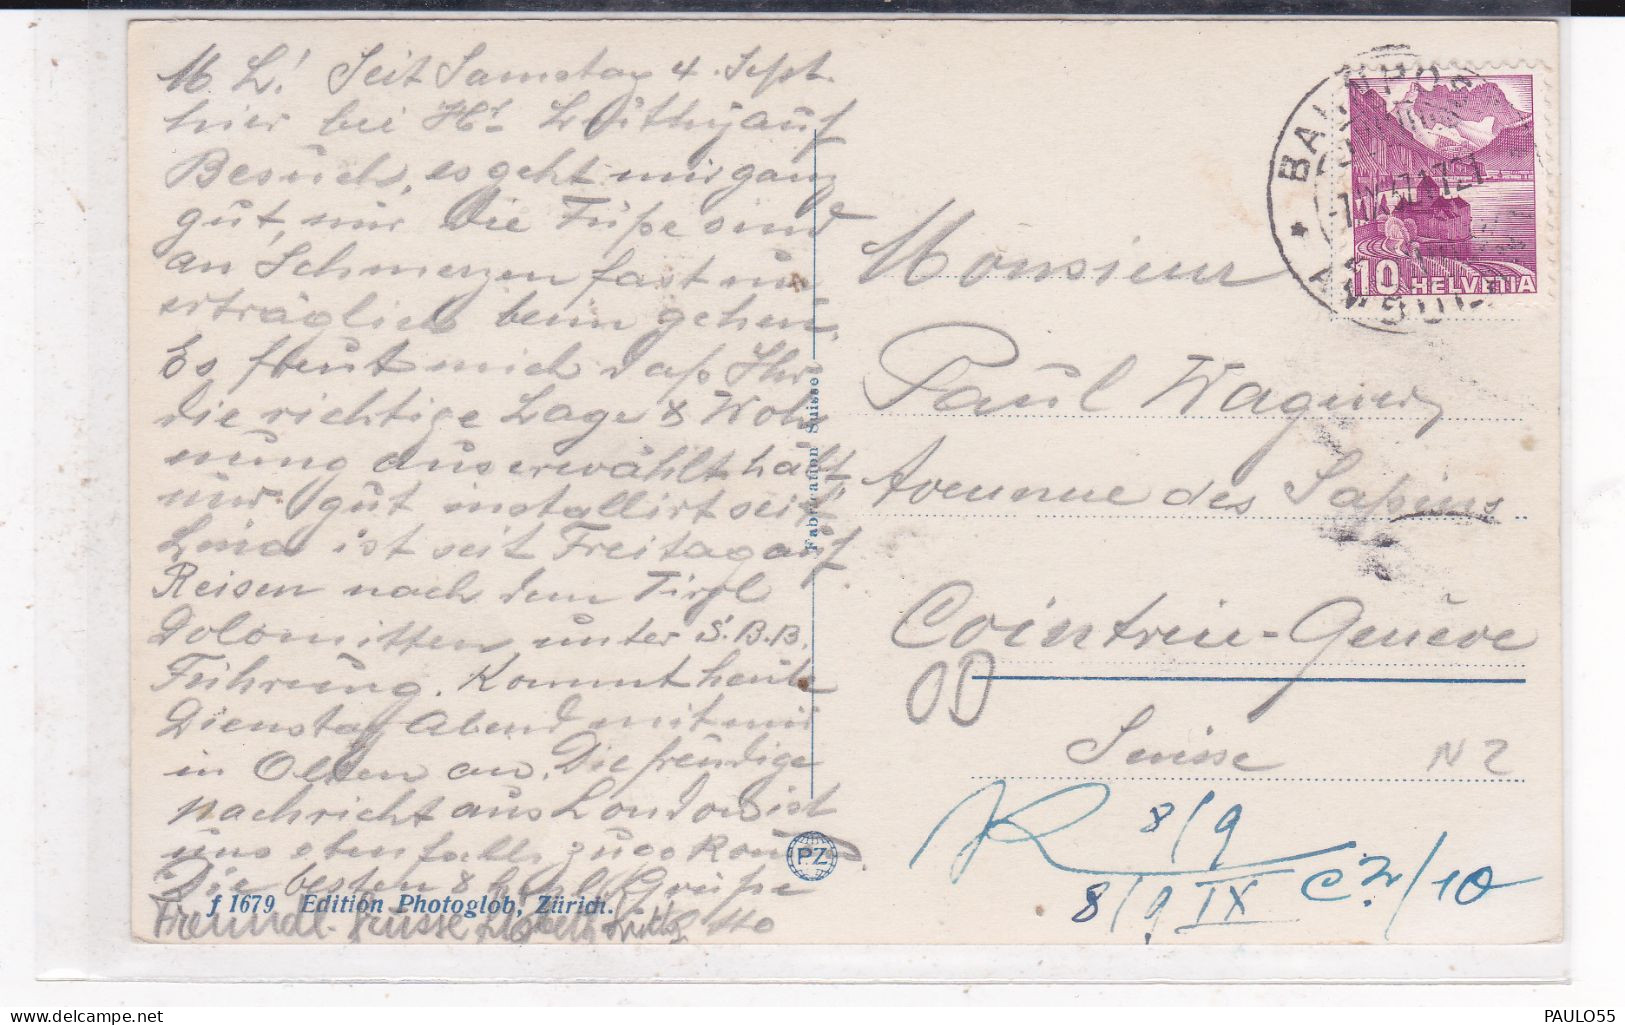 M. L.! Seit Samstag 4. Sept.
hier bei Hr. Lüthy auf
Besuch, es geht mir ganz
gut, nur die Füße sind
an Schmerzen fast un
erträglich beim gehen.
Es freut mich daß Ihr
die richtige Lage & Woh
nung auserwählt habt
nur gut installirt seit
Lina ist seit Freitag auf
Reisen nach dem Tirol
Dolomitten unter S.B.B.
Führung. Kommt heute
Dienstag Abend mit mir
in Olten an. Die freudige
Nachricht aus London ist
uns ebenfalls zugekom
Die besten & Grüße
Freundl. Grüsse
Fabrication Suisse
PZ
f 1679 Edition Photoglob, Zürich.
BAHNPOST
AMBULANT
-7.IX.37.17
10 HELVETIA
Monsieur
Paul Wagner
Avenue des Sapins
Cointrin-Genève
Suisse
N 2
R 8/9
8/9 IX
PAULO55